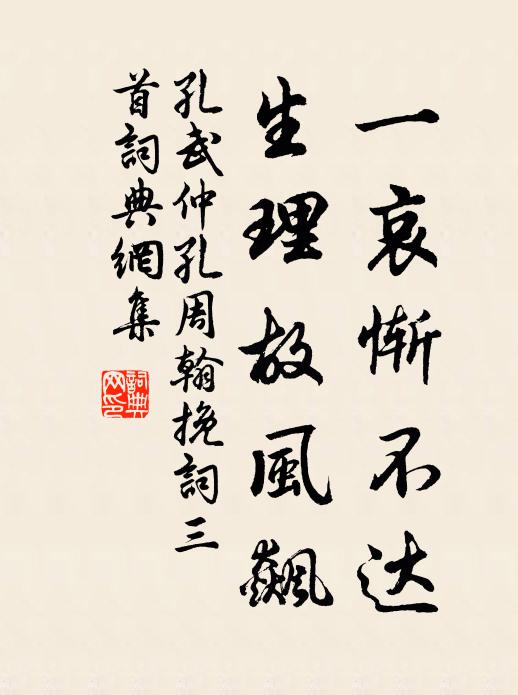 一哀惭不达
生理故風飙
孔武仲孔周翰挽詞三
首詞典網集
詞典
网印